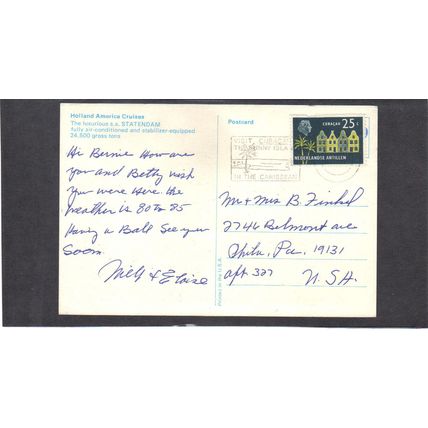 Holland America Cruises
The luxurious s.s. STATENDAM
fully air-conditioned and stabilizer-equipped
24,500 gross tons
Hi Bernie How are
you and Betty wish
you were Here. the
weather is 80 to 85
Having a Ball See you
Soon.
& Eloise
Postcard
VISIT CURACAO
IN THE CARIBBEAN
CURAÇAO 25 C
NEDERLANDSE ANTILLEN
Mr & Mrs B. Finkel
2746 Belmont ave
Phila, Pa. 19131
apt 327
U.S.A.
Printed in the U.S.A.